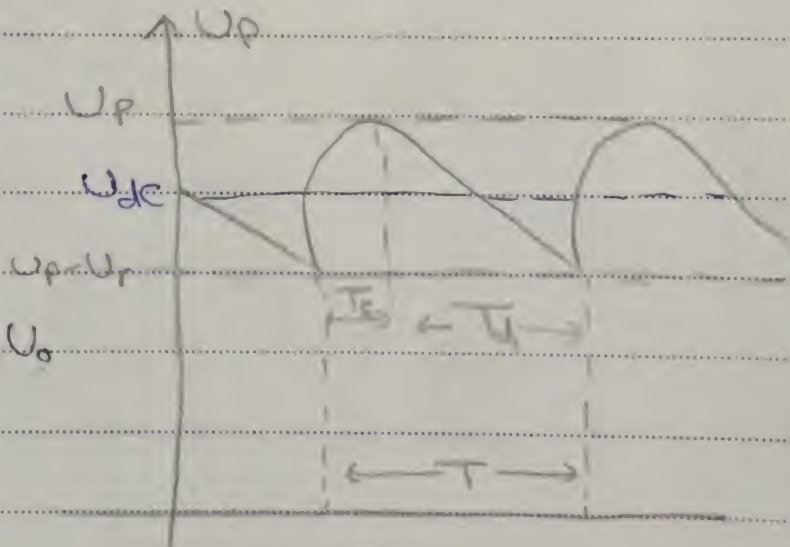 Up
Up
Udc
Up-Ur
Tc Td
Uo
T